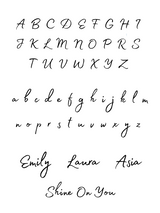 A B C D E F G H I
J K L M N O P R S
T U V W X Y Z
a b c d e f g h i j k l m
n o p r s t u v w x y z
Emily Laura Asia
Shine On You